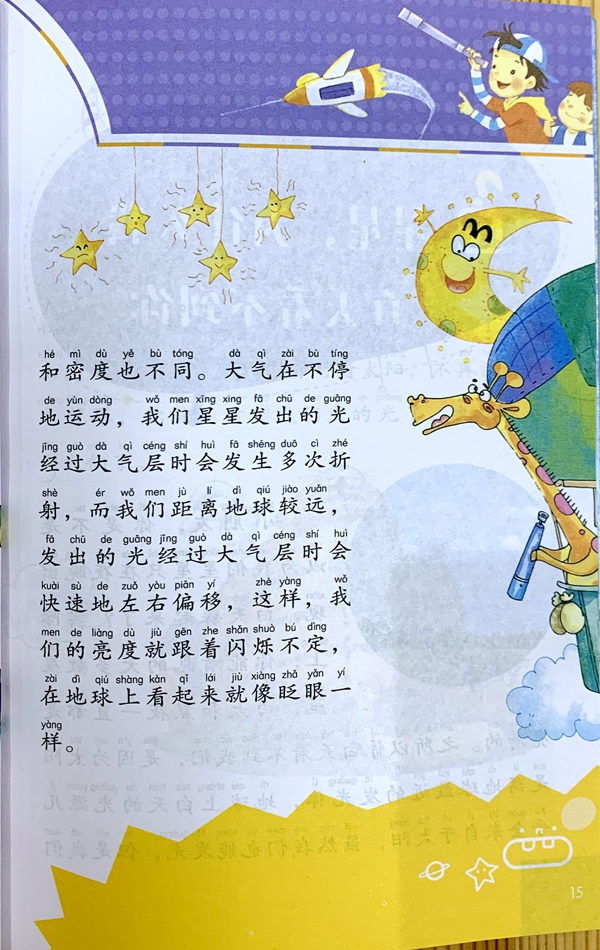 hé mì dù yě bù tóng dà qì zài bù tíng
和密度也不同。大气在不停
de yùn dòng wǒ men xīng xing fā chū de guāng
地运动，我们星星发出的光
jīng guò dà qì céng shí huì fā shēng duō cì zhé
经过大气层时会发生多次折
shè ér wǒ men jù lí dì qiú jiào yuǎn
射，而我们距离地球较远，
fā chū de guāng jīng guò dà qì céng shí huì
发出的光经过大气层时会
kuài sù de zuǒ yòu piān yí zhè yàng wǒ
快速地左右偏移，这样，我
men de liàng dù jiù gēn zhe shǎn shuò bú dìng
们的亮度就跟着闪烁不定，
zài dì qiú shàng kàn qǐ lái jiù xiàng zhǎ yǎn yí
在地球上看起来就像眨眼一
yàng
样。
15